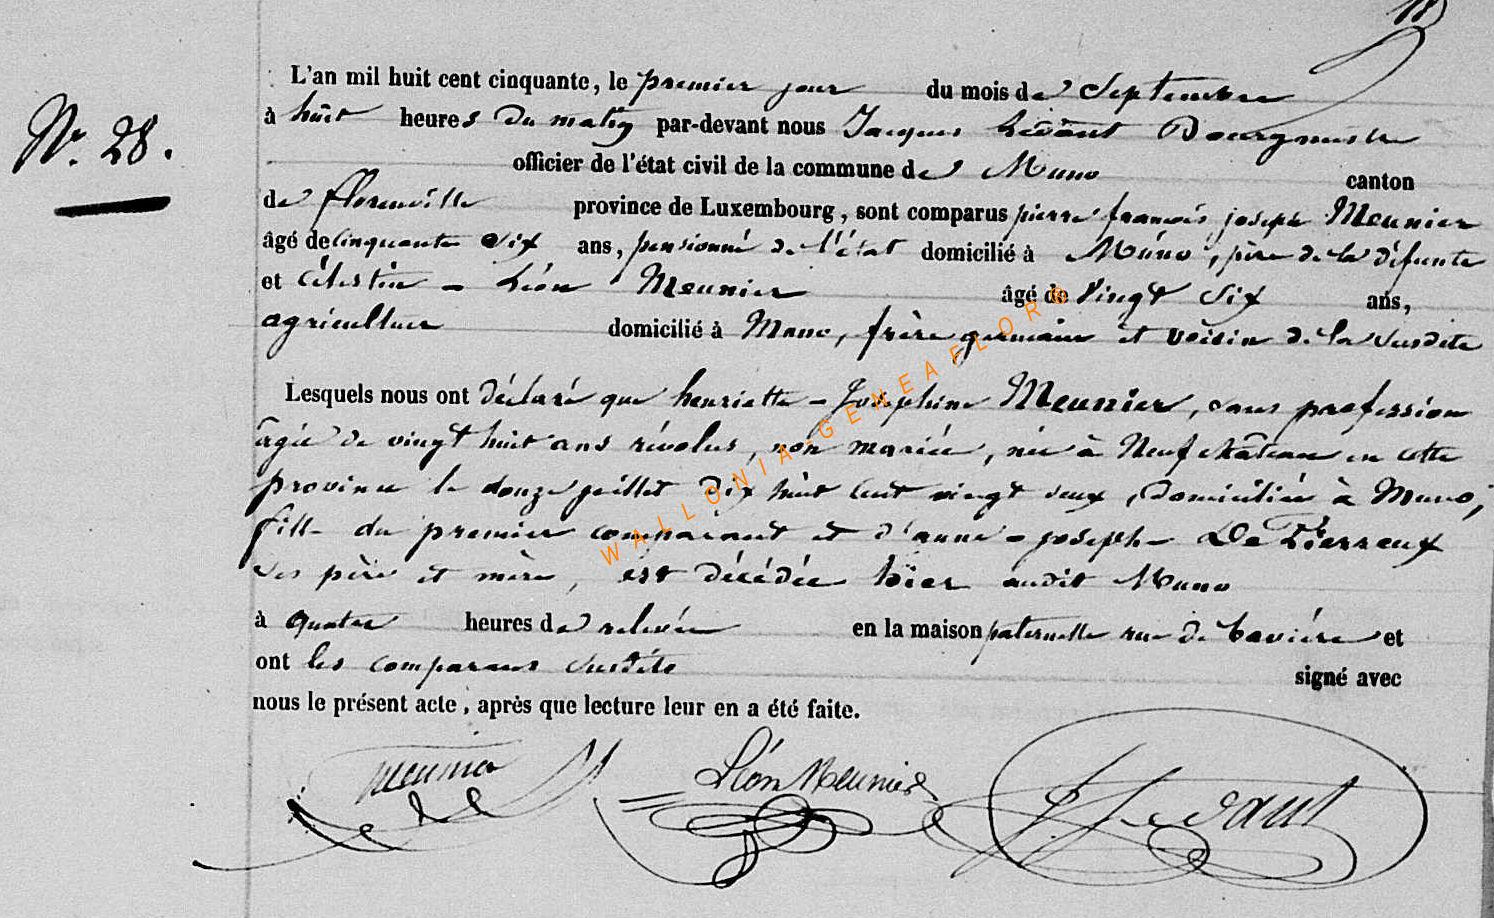 18
L'an mil huit cent cinquante, le premier jour du mois de Septembre
N.º 28.
à huit heures du matin par-devant nous Jacques Lédant Bourgmestre
officier de l'état civil de la commune de Muno canton
de florenville province de Luxembourg, sont comparus pierre françois joseph Meunier
âgé de cinquante Six ans, pensionné de l'état domicilié à Muno, père de la défunte
et Célestin - Léon Meunier âgé de Vingt Six ans,
agriculteur domicilié à Muno, frère germain et voisin de la susdite
Lesquels nous ont déclaré que henriette - Josephine Meunier, sans profession
âgée de vingt huit ans révolus, non mariée, née à Neufchâteau en cette
province le douze juillet dix huit cent vingt deux, domiciliée à Muno,
fille du premier comparant et d'anne - joseph De Pierreux
ses père et mère, est décédée hier audit Muno
à quatre heures de relevée en la maison paternelle rue de bavière et
ont les comparans susdits signé avec
nous le présent acte, après que lecture leur en a été faite.
Meunier Léon Meunier J Ledant
WALLONIA-GENEAFLOR©